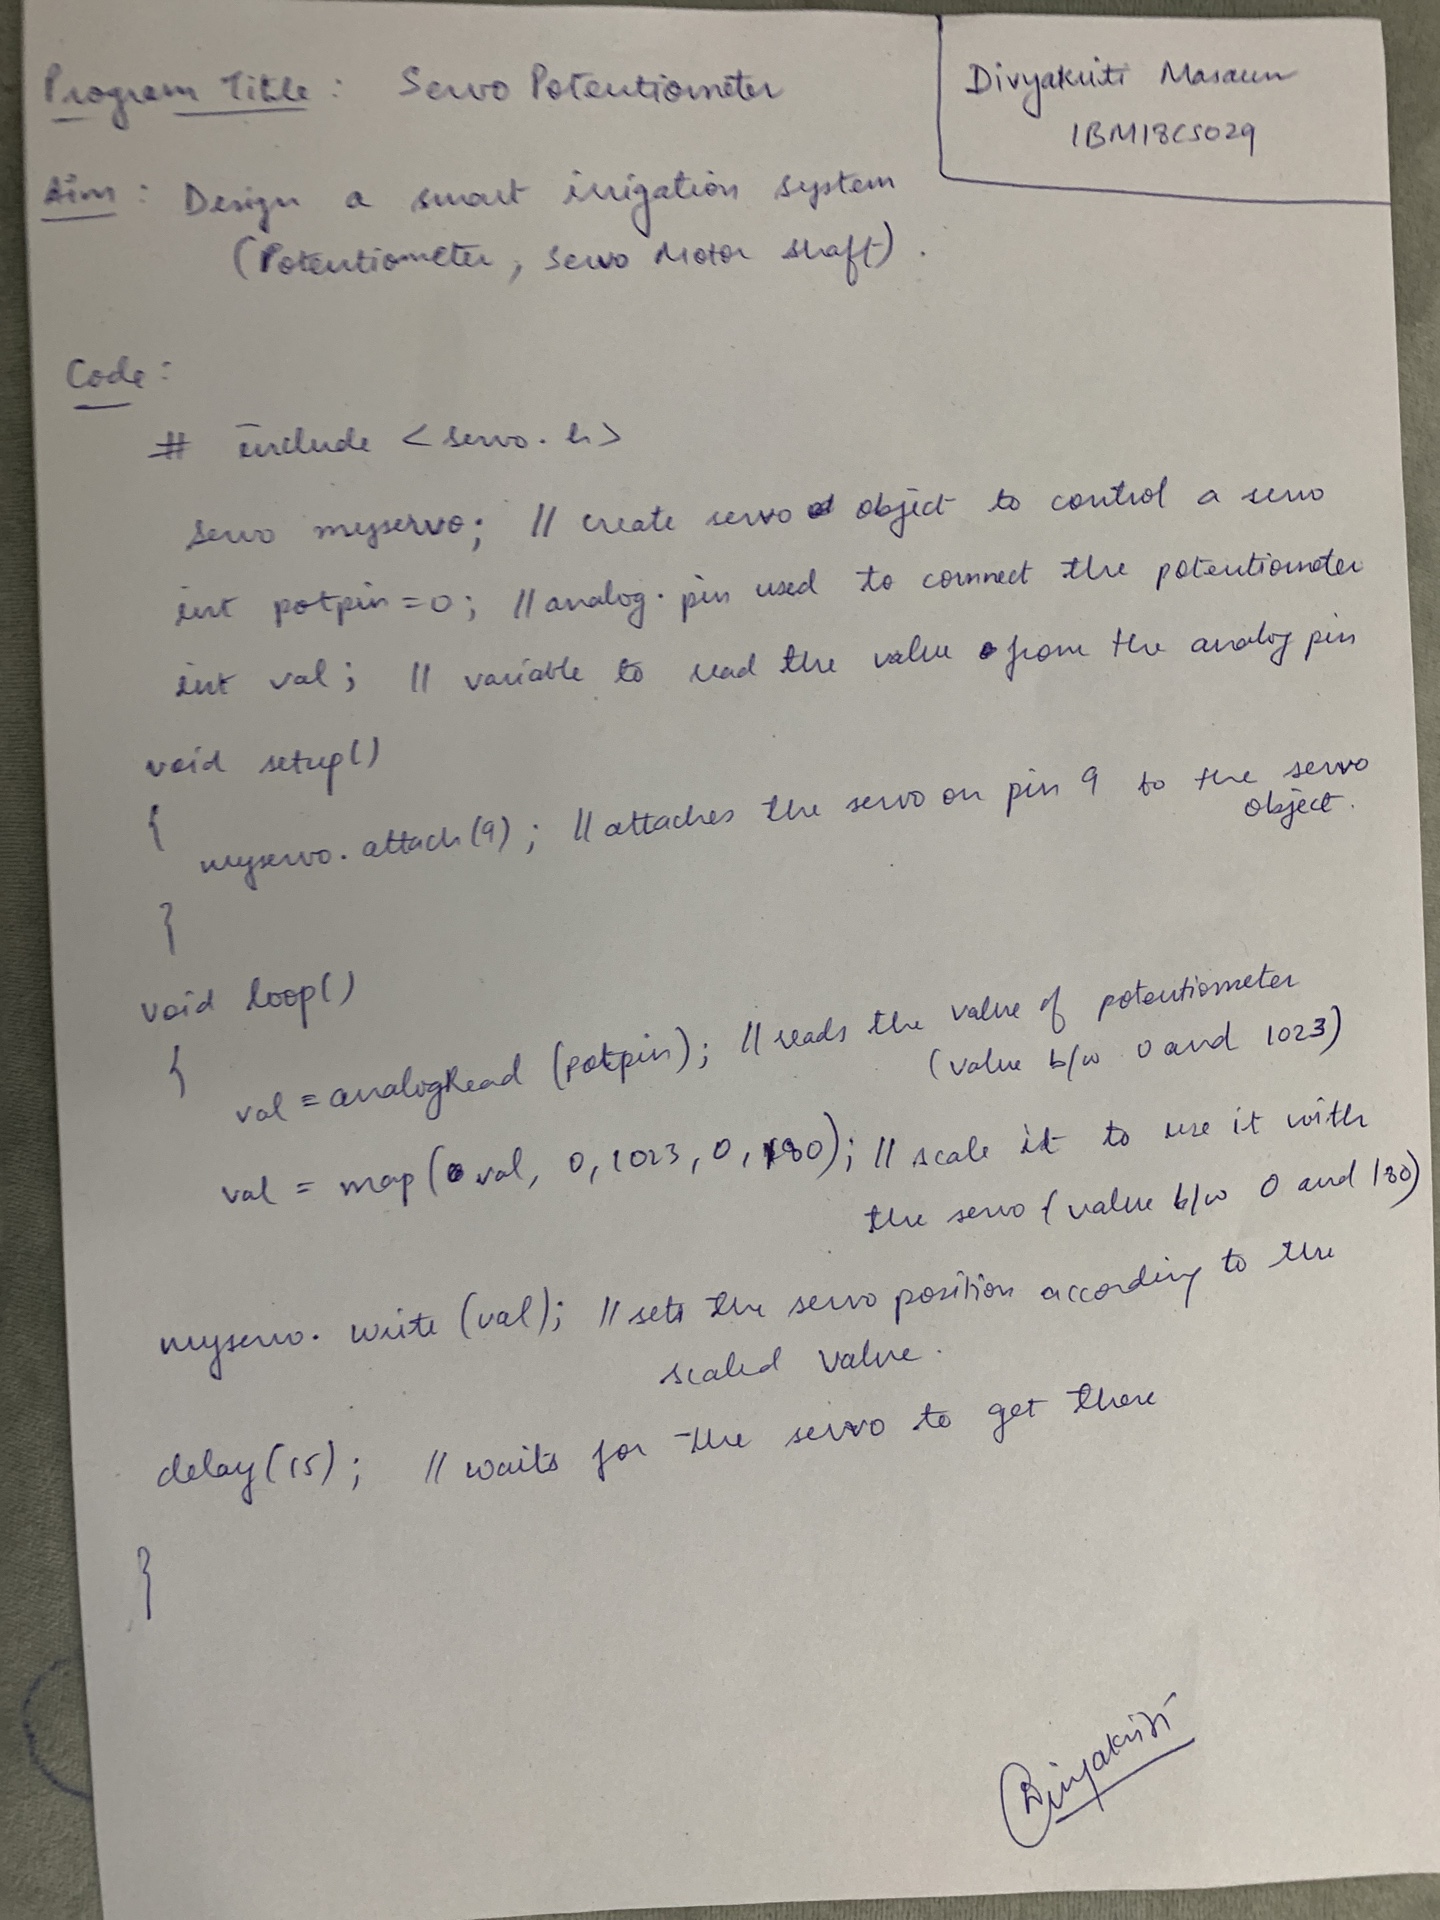 Program Title : Servo Potentiometer
Divyakriti Masaun
1BM18CS029
Aim : Design a smart irrigation system
(Potentiometer, Servo Motor shaft).
Code :
# include <servo.h>
servo myservo; // create servo object to control a servo
int potpin=0; // analog. pin used to connect the potentiometer
int val; // variable to read the value from the analog pin
void setup()
{
myservo.attach(9); // attaches the servo on pin 9 to the servo
object.
}
void loop()
{
val = analogRead (potpin); // reads the value of potentiometer
(value b/w 0 and 1023)
val = map(val, 0, 1023, 0, 180); // scale it to use it with
the servo (value b/w 0 and 180)
myservo. write (val); // sets the servo position according to the
scaled value.
delay(15); // waits for the servo to get there
}
Divyakriti